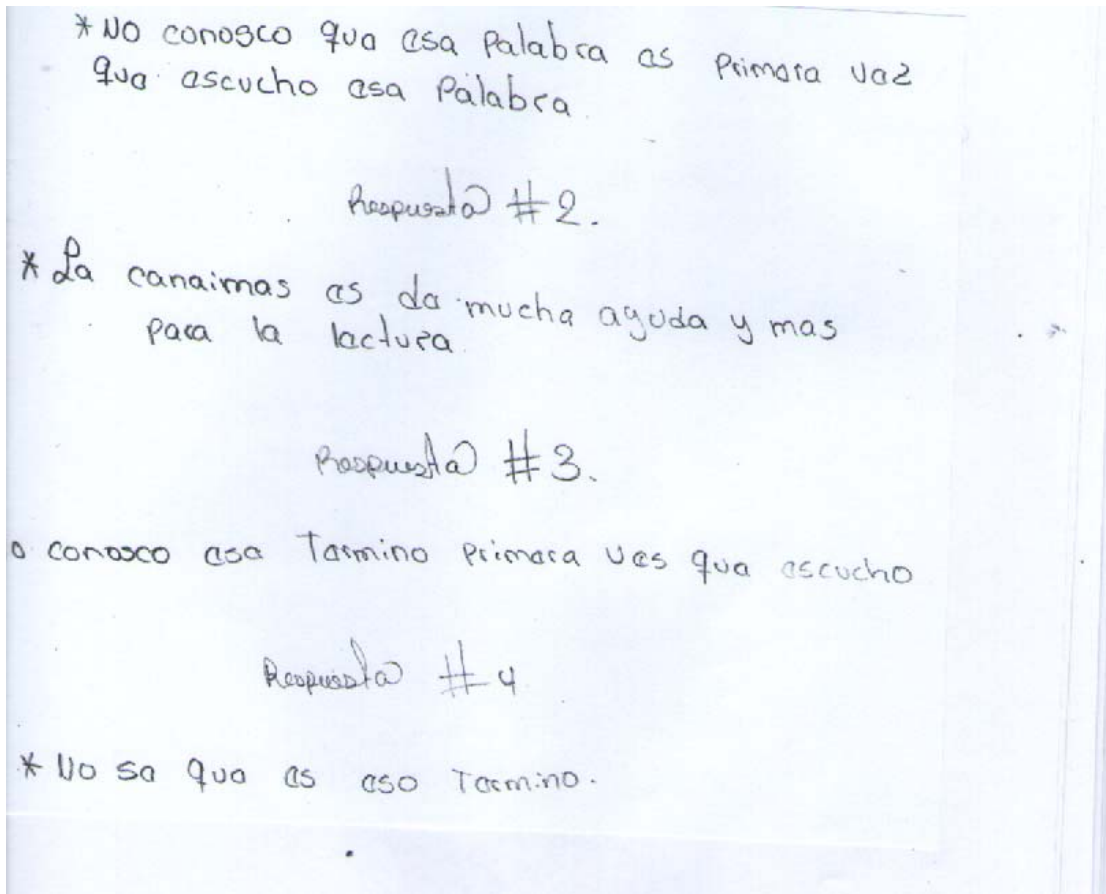 * No conosco que esa Palabra es Primera vez
que escucho esa Palabra
Respuesta #2.
* La canaimas es de mucha aguda y mas
para la lectura.
Respuesta #3.
o conosco ese Termino Primera ves que escucho
Respuesta #4
* No se que es eso Termino.